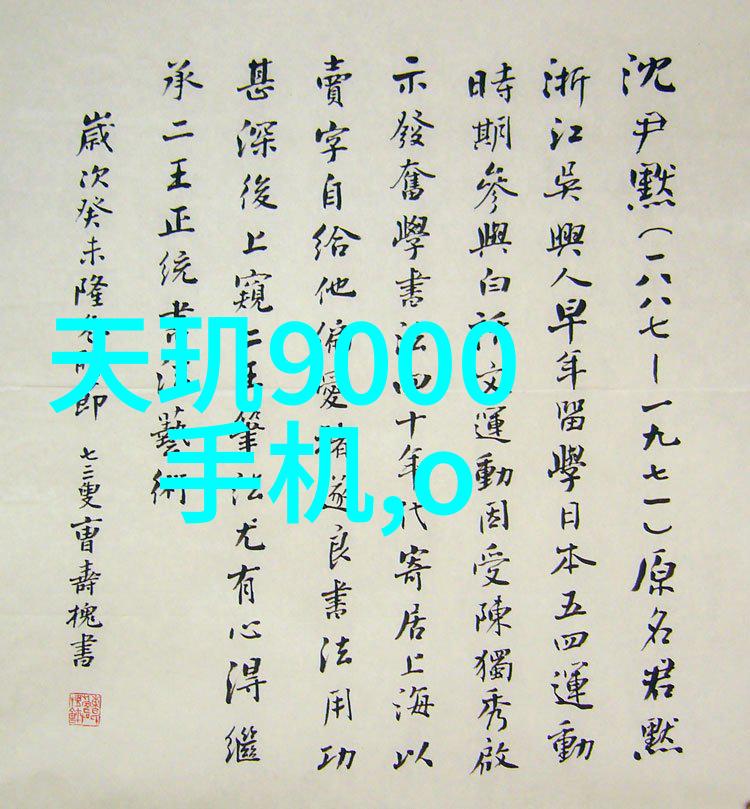 沈尹默(一八八七—一九七一)原名君默
浙江吳興人早年留學日本五四運動
時期參與白話文運動因受陳獨秀啟
示發奮學書法四十年代寄居上海以
賣字自給他偏愛褚遂良書法用功
甚深後上窺二王筆法尤有心得繼
承二王正統書法藝術
歲次癸未隆冬時節 七三叟曹壽槐書
天玑9000
手机,o